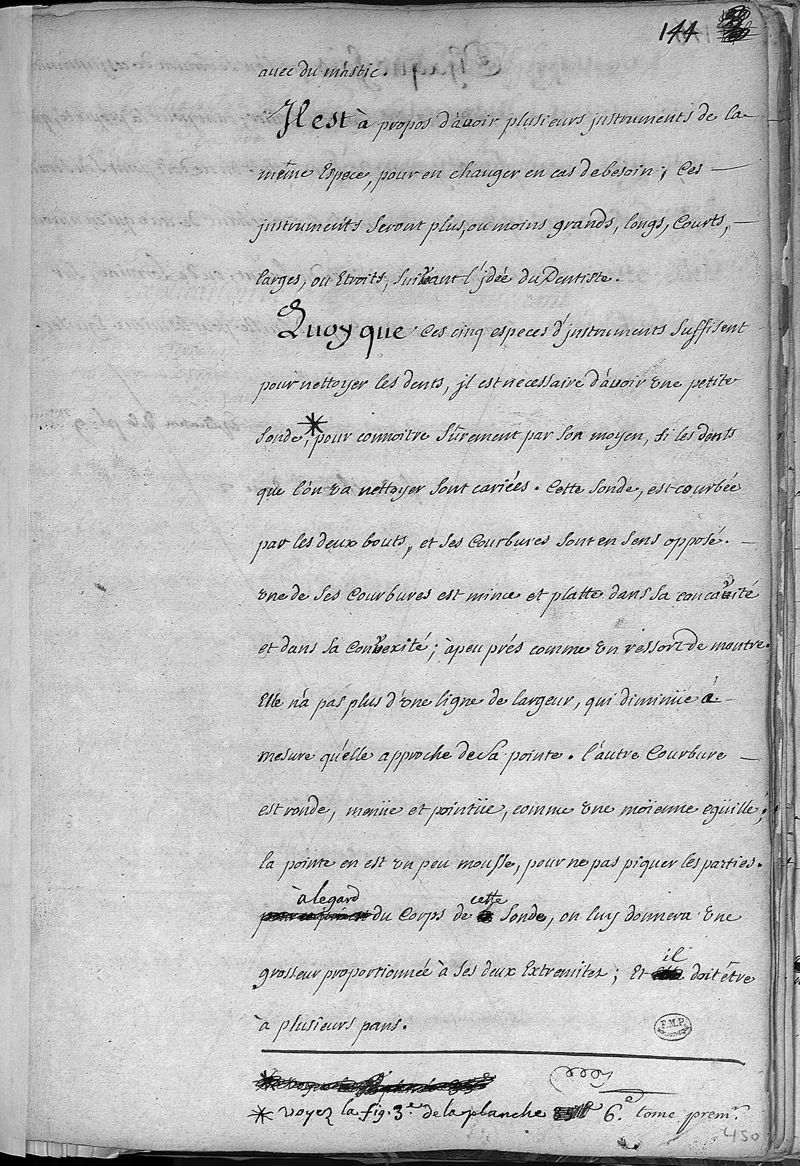 144
avec du mastic.
Il est à propos d'avoir plusieurs jnstruments de la
même Espece, pour en changer en cas de besoin; Ces
jnstruments seront plus, ou moins grands, longs, Courts,
larges, ou Etroits, suivant l'jdée du Dentiste.
Quoy que Ces cinq especes d'jnstruments suffisent
pour nettoyer les dents, jl est necessaire d'avoir une petite
sonde,* pour connoître sûrement par son moyen, si les dents
que l'on va nettoyer sont cariées. Cette sonde, est courbée
par les deux bouts, et ses Courbures sont en sens opposé.
une de ses Courbures est mince et platte dans sa concavité
et dans sa Convexité; àpeu prés comme un ressort de montre.
Elle n'a pas plus d'une ligne de largeur, qui diminüe à
mesure qu'elle approche de la pointe. l'autre Courbure
est ronde, menüe et pointüe, comme une moïenne eguïlle;
la pointe en est un peu mousse, pour ne pas piquer les parties.
à legard du Corps de cette sonde, on luy donnera une
grosseur proportionnée à ses deux Extremitez; Et il doit être
à plusieurs pans.
F.M.P.
* voyez la fig. 3.e de la planche 6.e tome prem.r
450